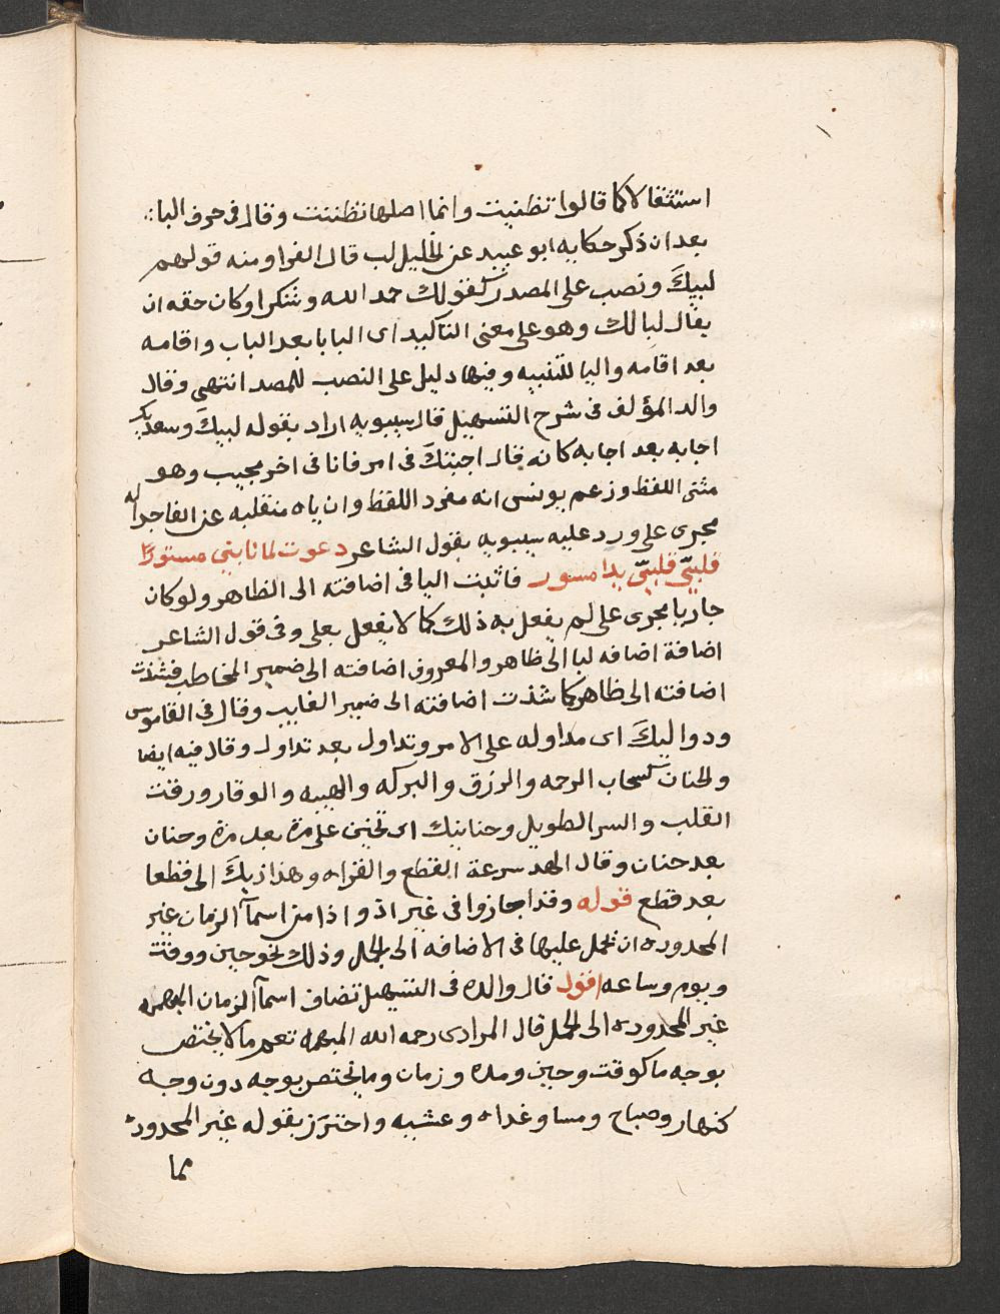 استثقالا كما قالوا تظنيت وانما اصلها تظننت وقال فى حرف البا
بعد ان ذكر حكاية ابو عبيد عن الخليل لب قال الفرا ومنه قولهم
لبيكَ ونصب على المصدر كقولك حمد الله وشكرا وكان حقه ان
يقال لبا لك وهو على معنى التاكيد اى البابا بعد الباب واقامه
بعد اقامه واليا للتثنيه وفيها دليل على النصب للمصدر انتهى وقال
والد المؤلف فى شرح التسهيل قال سيبويه اراد بقوله لبيكَ وسعديك
اجابه بعد اجابه كانه قال اجبتكَ فى امر فانا فى اخر مجيب وهو
مثنى اللفظ وزعم يونس انه مفرد اللفظ وان ياه منقلبه عن الفا جراله
مجرى على ورد عليه سيبويه بقول الشاعر دعوت لما نابنى مستورًا
فلبّى فلبىّ يدا مسور فاثبت اليا فى اضافته الى الظاهر ولو كان
جاريا مجرى على لم يفعل به ذلك كما لا يفعل بعلى وفى قول الشاعر
اضافة اضافه لبا الى ظاهر والمعروف اضافته الى ضمير المخاطب فشذت
اضافته الى ظاهر كما شذت اضافته الى ضمير الغايب وقال فى القاموس
ودواليكَ اى مداوله على الامر وتداول بعد تداول وقال فيه ايضا
والحنان كسحاب الرحمه والرزق والبركه والهيبه والوقار ورقت
القلب والسر الطويل وحنانيك اى تحنن على مرة بعد مرة وحنان
بعد حنان وقال الهد سرعة القطع والقراه وهذاذيكَ الى قطعا
بعد قطع قوله وقد اجازوا فى غير اذ واذا من اسمآ الزمان غير
المحدوده ان تحمل عليها فى الاضافه الى الجمل وذلك نحو حين ووقت
ويوم وساعه اقول قال والده فى التسهيل تضاف اسمآ الزمان المبهمه
غير المحدوده الى الجمل قال المرادى رحمه الله المبهمه تعم ما لا يختص
بوجه ما كوقت وحين ومده وزمان وما يختص بوجه دون وجه
كنهار وصباح ومسا وغداه وعشيه واحترز بقوله غير المحدودة
مما